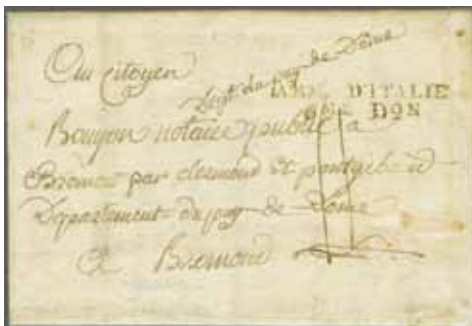 Au citoyen
Dept du puy de Dome
ARM. D'ITALIE
DON
Baujon notaire public a
Bromont par clermond et pontgibaud
Departement du puy de Dome
a Bromond